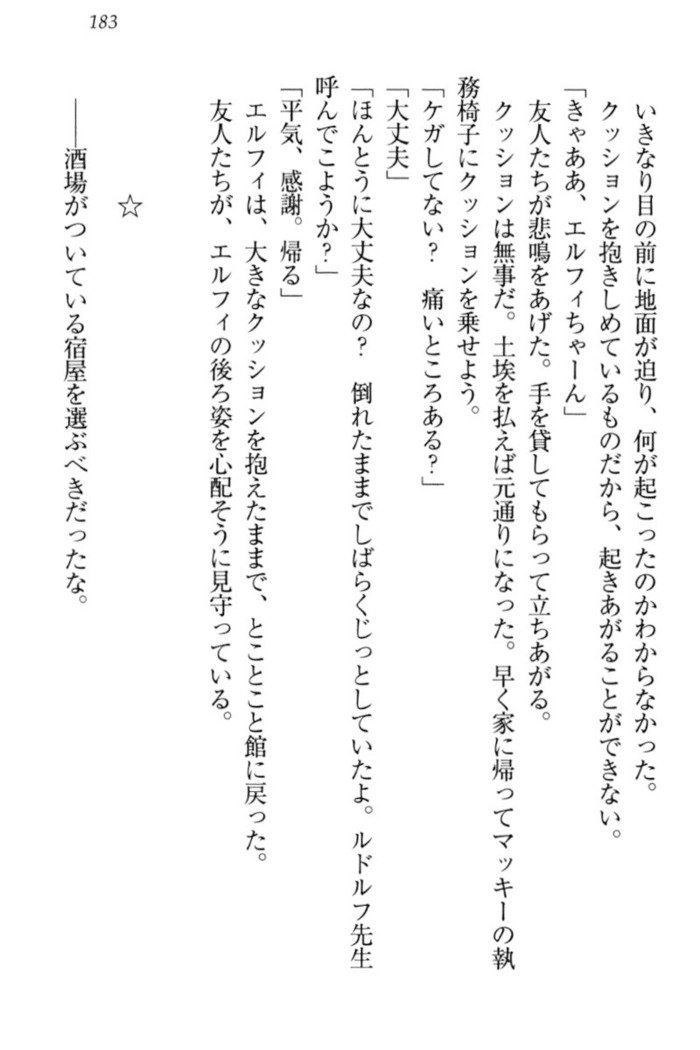 183
いきなり目の前に地面が迫り、何が起こったのかわからなかった。
クッションを抱きしめているものだから、起きあがることができない。
「きゃああ、エルフィちゃーん」
友人たちが悲鳴をあげた。手を貸してもらって立ちあがる。
クッションは無事だ。土埃を払えば元通りになった。早く家に帰ってマッキーの執
務椅子にクッションを乗せよう。
「ケガしてない？　痛いところある？」
「大丈夫」
「ほんとうに大丈夫なの？　倒れたままでしばらくじっとしていたよ。ルドルフ先生
呼んでこようか？」
「平気、感謝。帰る」
エルフィは、大きなクッションを抱えたままで、とことこと館に戻った。
友人たちが、エルフィの後ろ姿を心配そうに見守っている。
☆
――酒場がついている宿屋を選ぶべきだったな。